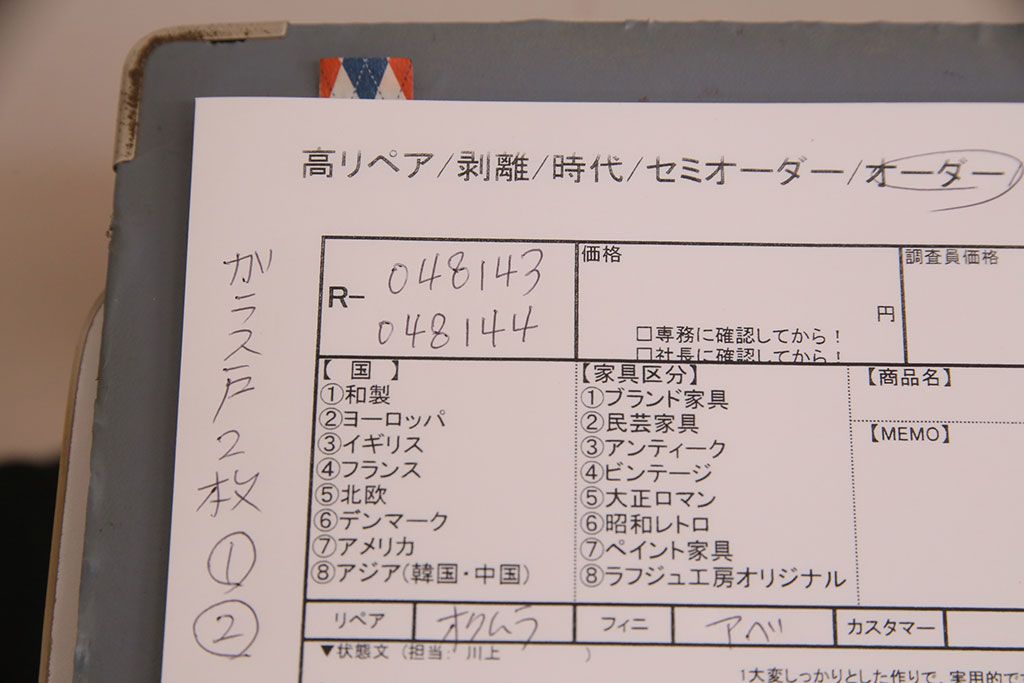 高リペア/剥離/時代/セミオーダー/オーダー
ガラス戸2枚①②
R- 048143
048144
価格
円
□専務に確認してから!
□社長に確認してから!
調査員価格
【 国 】
①和製
②ヨーロッパ
③イギリス
④フランス
⑤北欧
⑥デンマーク
⑦アメリカ
⑧アジア(韓国・中国)
【家具区分】
①ブランド家具
②民芸家具
③アンティーク
④ビンテージ
⑤大正ロマン
⑥昭和レトロ
⑦ペイント家具
⑧ラフジュ工房オリジナル
【商品名】
【MEMO】
リペア オクムラ フィニ アベ カスタマー
▼状態文(担当: 川上 )
1大変しっかりとした作りで、実用的で